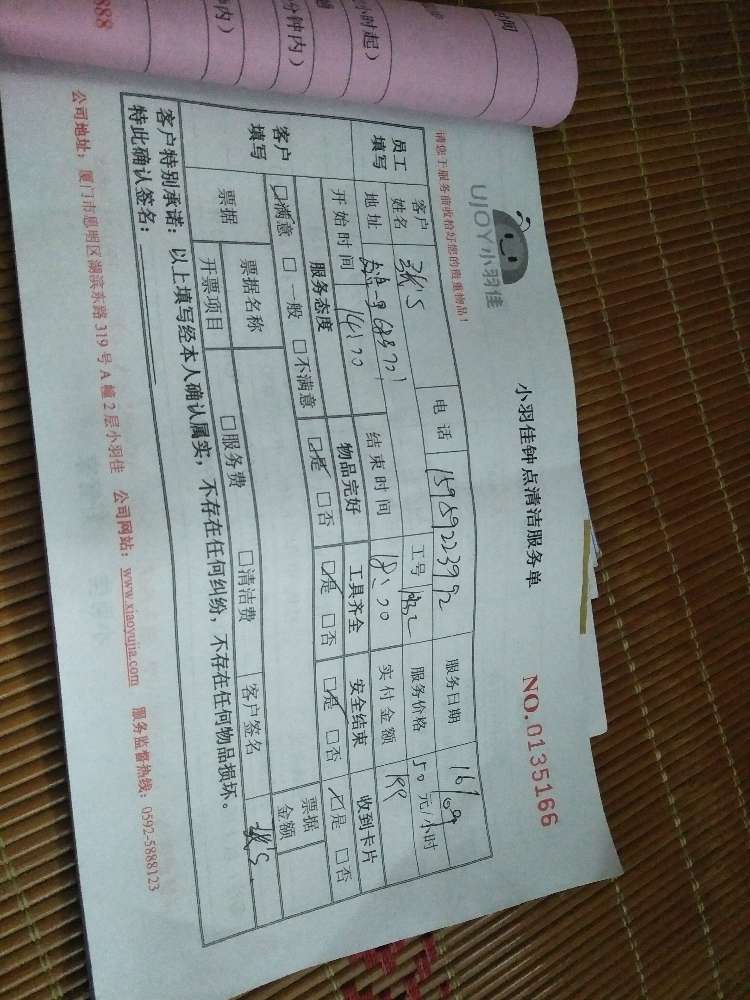 888
分钟内）
小时起）
UJOY小羽佳
小羽佳钟点清洁服务单
NO.0135166
请您于服务前收拾好您的贵重物品！
员工填写
客户姓名
张'S
电话
15959223992
服务日期
16/09
地址
683 701
工号
服务价格
50元/小时
开始时间
14:00
结束时间
18:00
实付金额
客户填写
服务态度
物品完好
工具齐全
安全结束
收到卡片
☑满意 □一般 □不满意
☑是 □否
☑是 □否
☑是 □否
☑是 □否
票据
票据名称
□服务费 □清洁费
票据金额
开票项目
客户签名
张'S
客户特别承诺：以上填写经本人确认属实，不存在任何纠纷，不存在任何物品损坏。
特此确认签名：
公司地址：厦门市思明区湖滨东路319号A幢2层小羽佳 公司网站：www.xiaoyujia.com 服务监督热线：0592-5888123